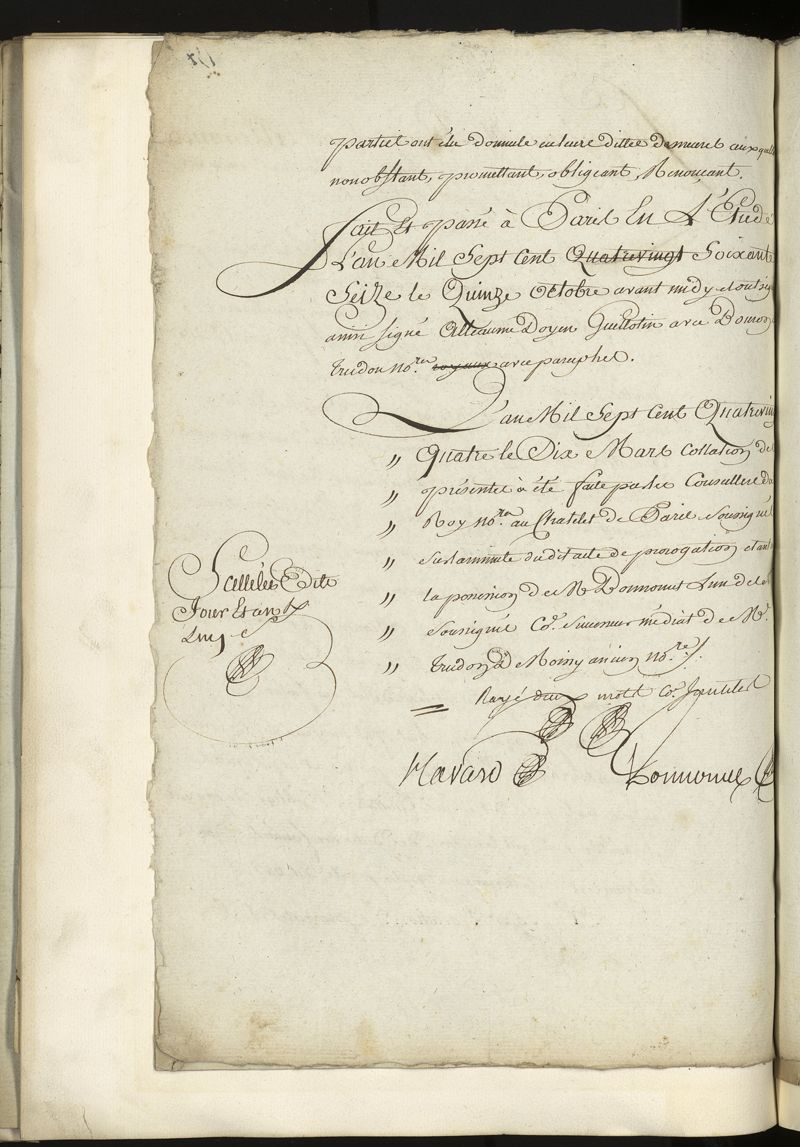 parties ont élu domicile en leurs dittes demeures auxquelles
nonobstant, promettant, obligeant, Renonçant.
Fait Et passé à Paris En L'Etude
L'an Mil Sept Cent Quatrevingt Soixante
Seize le Quinze Octobre avant midy et ont signé
ainsi signé Alleaume Doyen Guillotin avec Doumon
Trudon nores royaux avec paraphes.
L'an Mil Sept Cent Quatreving
" Quatre le Dix Mars Collation des
" présentes à été faite par les Conseillers du
" Roy nores au Chatelet de Paris Soussignés
" sur la minute dudit acte de prorogation etant
" la possession de Me Dommomet L'un des
" Soussignés Co. Successeur médiat de Me
" Trudon De Roissy ancien nore /.
= Rayé deux mots Co. Inutiles
Havard
Scellé les Edits
Jour Et an